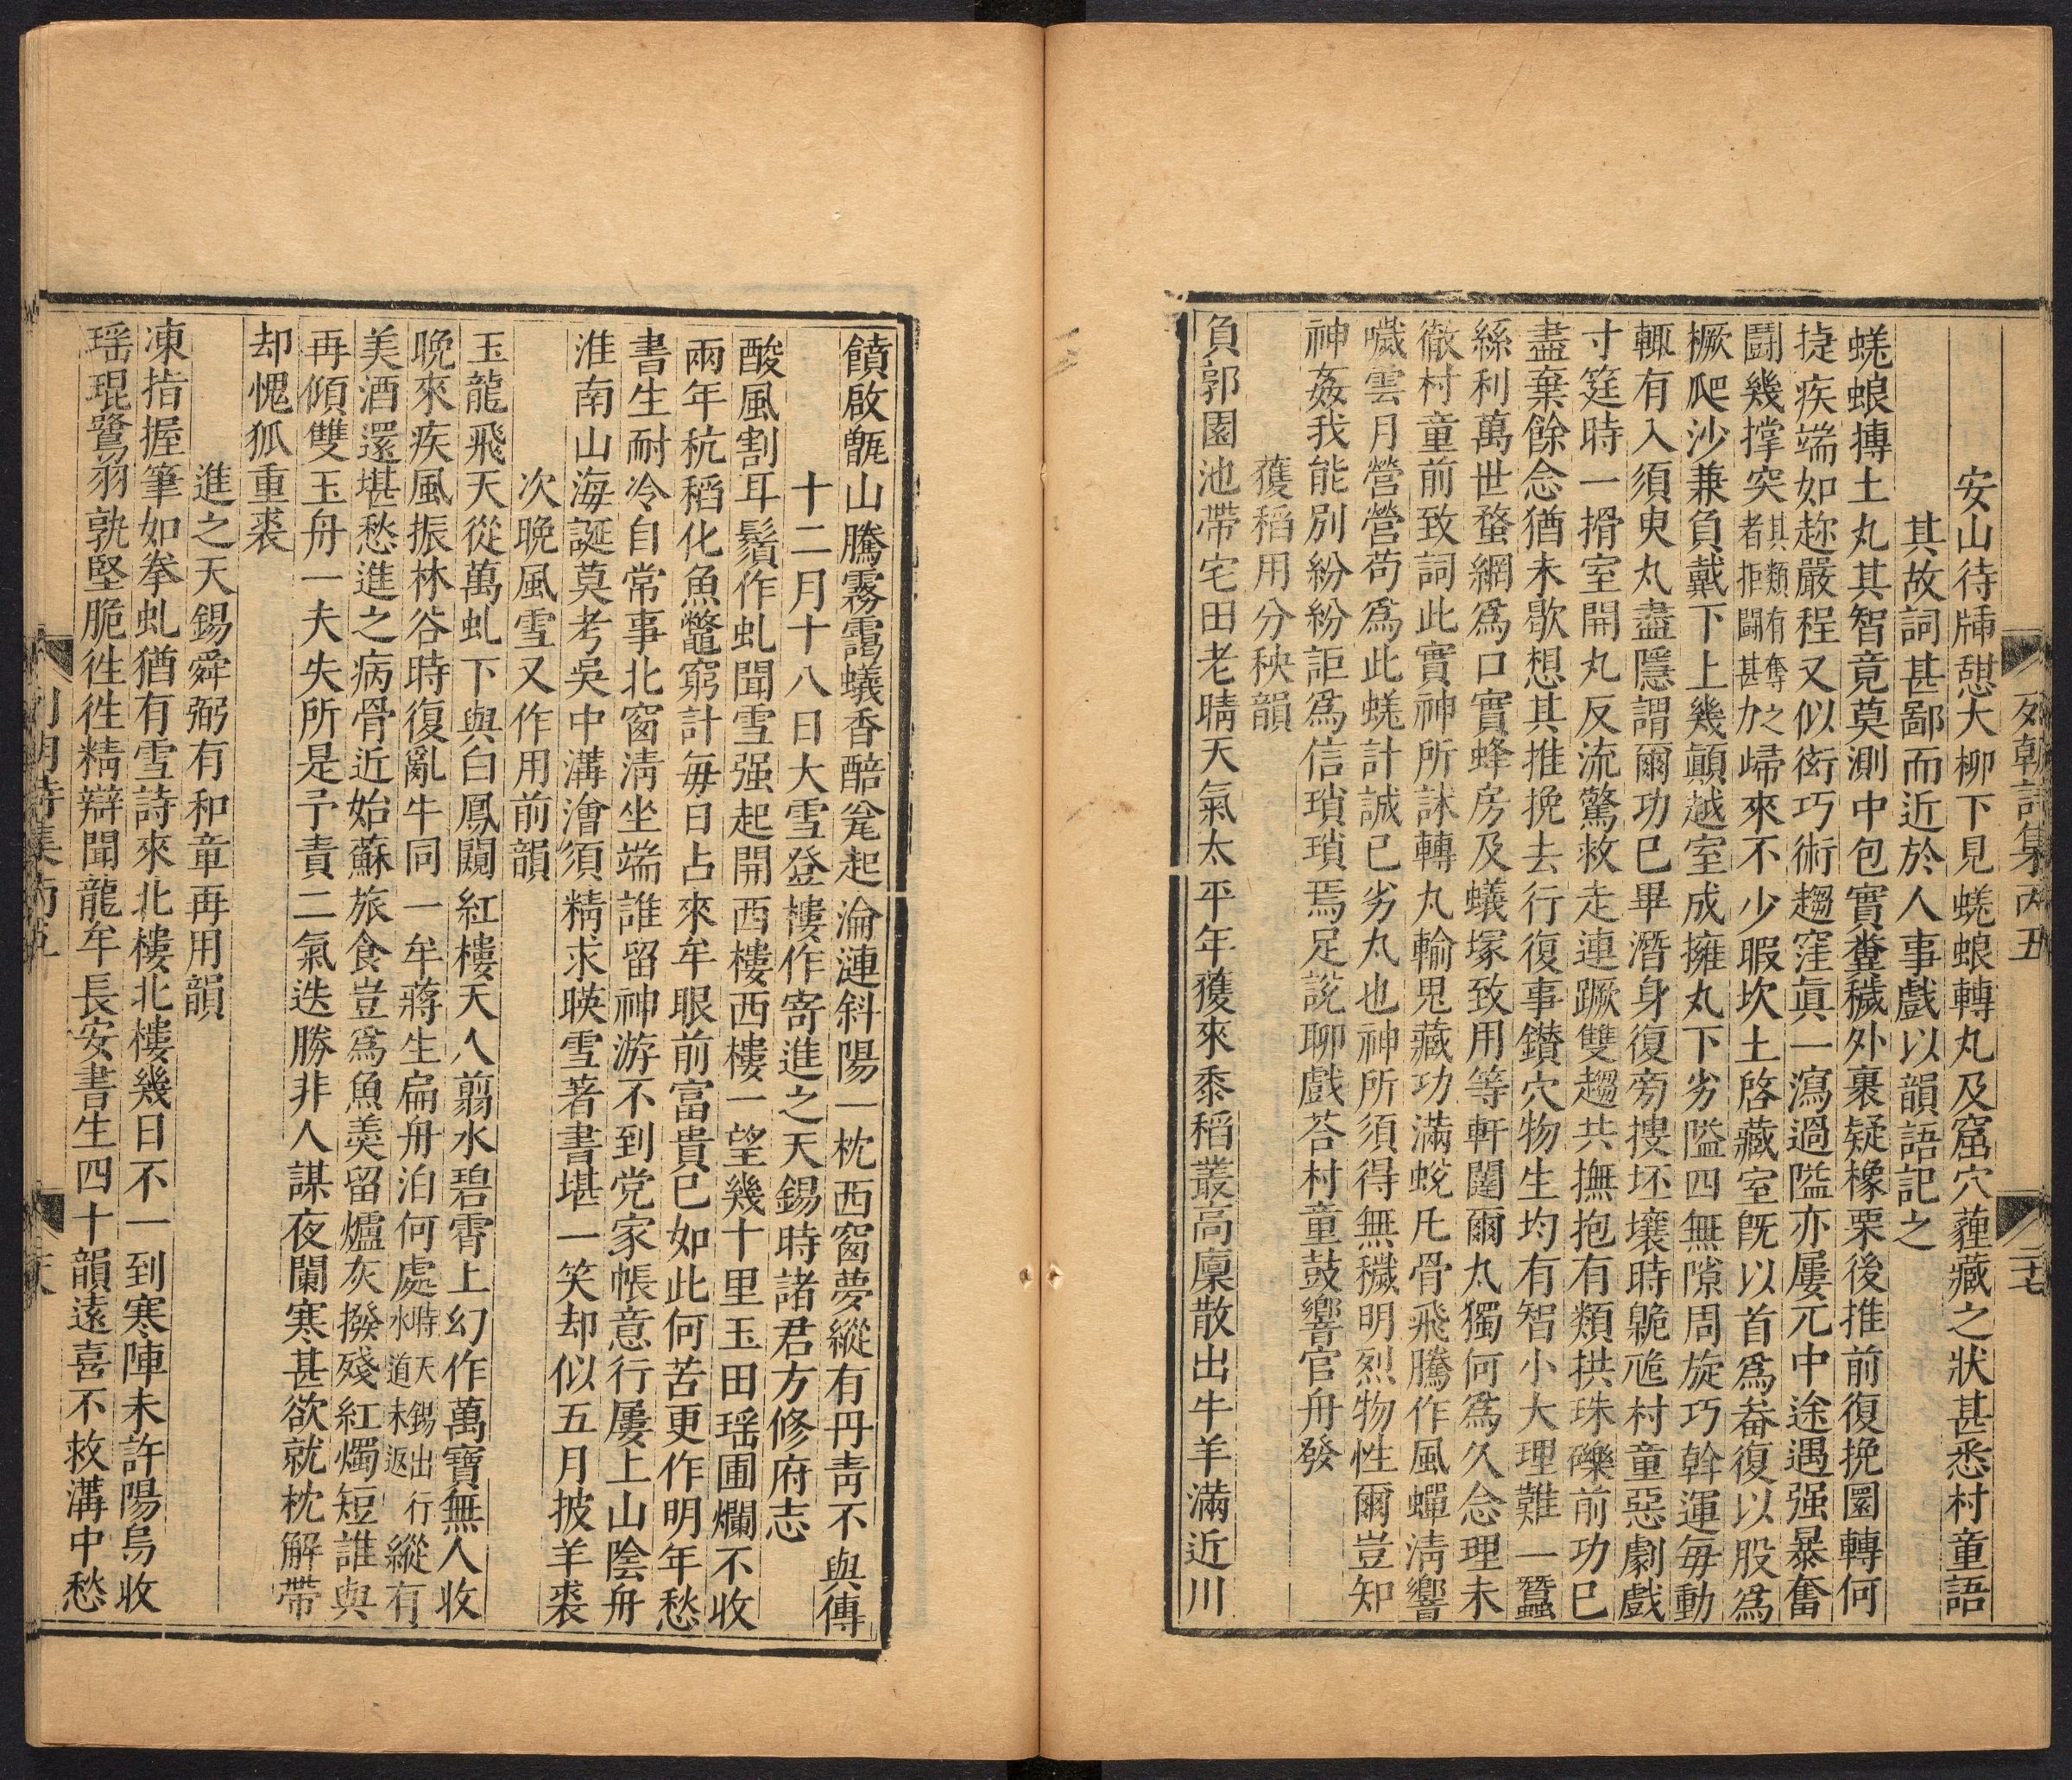 安山待牐憩大柳下見蜣蜋轉丸及窟穴薶藏之狀甚悉村童語
其故詞甚鄙而近於人事戲以韻語記之
蜣蜋摶土丸其智竟莫測中包實糞穢外裹疑橡栗後推前復挽圜轉何
捷疾端如趂嚴程又似衒巧術趨窪眞一瀉過隘亦屢元中途遇强暴奮
鬬幾撑突其類有奪之者拒鬬甚力歸來不少暇坎土啓藏室旣以首爲畚復以股爲
橛爬沙兼負戴下上幾顚越室成擁丸下劣隘四無隙周旋巧斡運每動
輒有入須臾丸盡隱謂爾功已畢潛身復旁摉坯壤時臲卼村童惡劇戲
寸筳時一搰室開丸反流驚救走連蹶雙趨共撫抱有類拱珠礫前功已
盡棄餘念猶未歇想其推挽去行復事鑚穴物生均有智小大理難一蠶
絲利萬世蝥網爲口實蜂房及蟻塚致用等軒闥爾丸獨何爲久念理未
徹村童前致詞此實神所詸轉丸輸鬼藏功滿蛻凡骨飛騰作風蟬淸響
嘰雲月營營苟爲此蜣計誠已劣丸也神所須得無穢明烈物性爾豈知
神姦我能別紛紛詎爲信瑣瑣焉足說聊戲荅村童鼓響官舟發
穫稻用分秧韻
負郭園池帶宅田老晴天氣太平年穫來黍稻叢高廩散出牛羊滿近川
列朝詩集丙五
二七
饙啟甑山騰霧靄蟻香醅瓮起淪漣斜陽一枕西窗夢縱有丹靑不與傳
十二月十八日大雪登樓作寄進之天錫時諸君方修府志
酸風割耳鬚作虬聞雪强起開西樓西樓一望幾十里玉田瑶圃爛不收
兩年秔稻化魚鼈窮計每日占來牟眼前富貴已如此何苦更作明年愁
書生耐冷自常事北窗淸坐端誰留神游不到党家帳意行屢上山陰舟
淮南山海誕莫考吳中溝澮須精求暎雪著書堪一笑却似五月披羊裘
次晚風雪又作用前韻
玉龍飛天從萬虬下與白鳳鬪紅樓天人翦水碧霄上幻作萬寶無人收
晚來疾風振林谷時復亂牛同一牟蔣生扁舟泊何處時天錫出行水道未返縱有
美酒還堪愁進之病骨近始蘇旅食豈爲魚羙留爐灰撥殘紅燭短誰與
再傾雙玉舟一夫失所是予責二氣迭勝非人謀夜闌寒甚欲就枕解帶
却愧狐重裘
進之天錫舜弼有和章再用韻
凍指握筆如拳虬猶有雪詩來北樓北樓幾日不一到寒陣未許陽烏收
瑶琨鷺羽孰堅脆徃徃精辯聞龍牟長安書生四十韻遠喜不救溝中愁
列朝詩集丙五